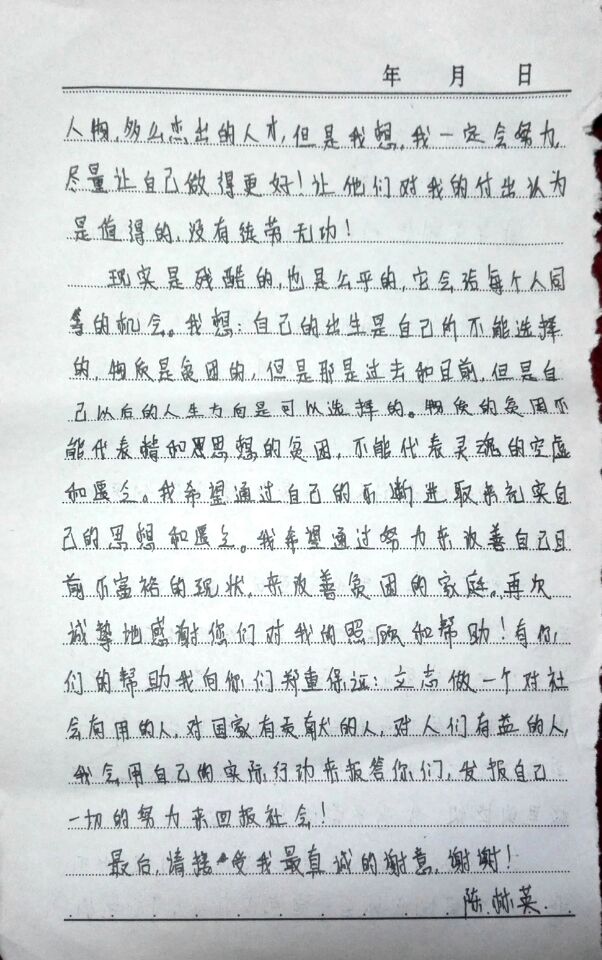 年 月 日
人物,多么杰出的人才,但是我想,我一定会努力,
尽量让自己做得更好!让他们对我的付出认为
是值得的,没有徒劳无功!
现实是残酷的,也是公平的,它会给每个人同
等的机会。我想:自己的出生是自己所不能选择
的,物质是贫困的,但是那是过去和目前,但是自
己以后的人生方向是可以选择的。物质的贫困不
能代表精和思思想的贫困,不能代表灵魂的空虚
和匮乏。我希望通过自己的不断进取来充实自
己的思想和匮乏。我希望通过努力来改善自己目
前不富裕的现状,来改善贫困的家庭。再次
诚挚地感谢您们对我的照顾和帮助!有你
们的帮助我向你们郑重保证:立志做一个对社
会有用的人,对国家有贡献的人,对人们有益的人,
我会用自己的实际行动来报答你们,发报自己
一切的努力来回报社会!
最后,请接受我最真诚的谢意,谢谢!
陈 英